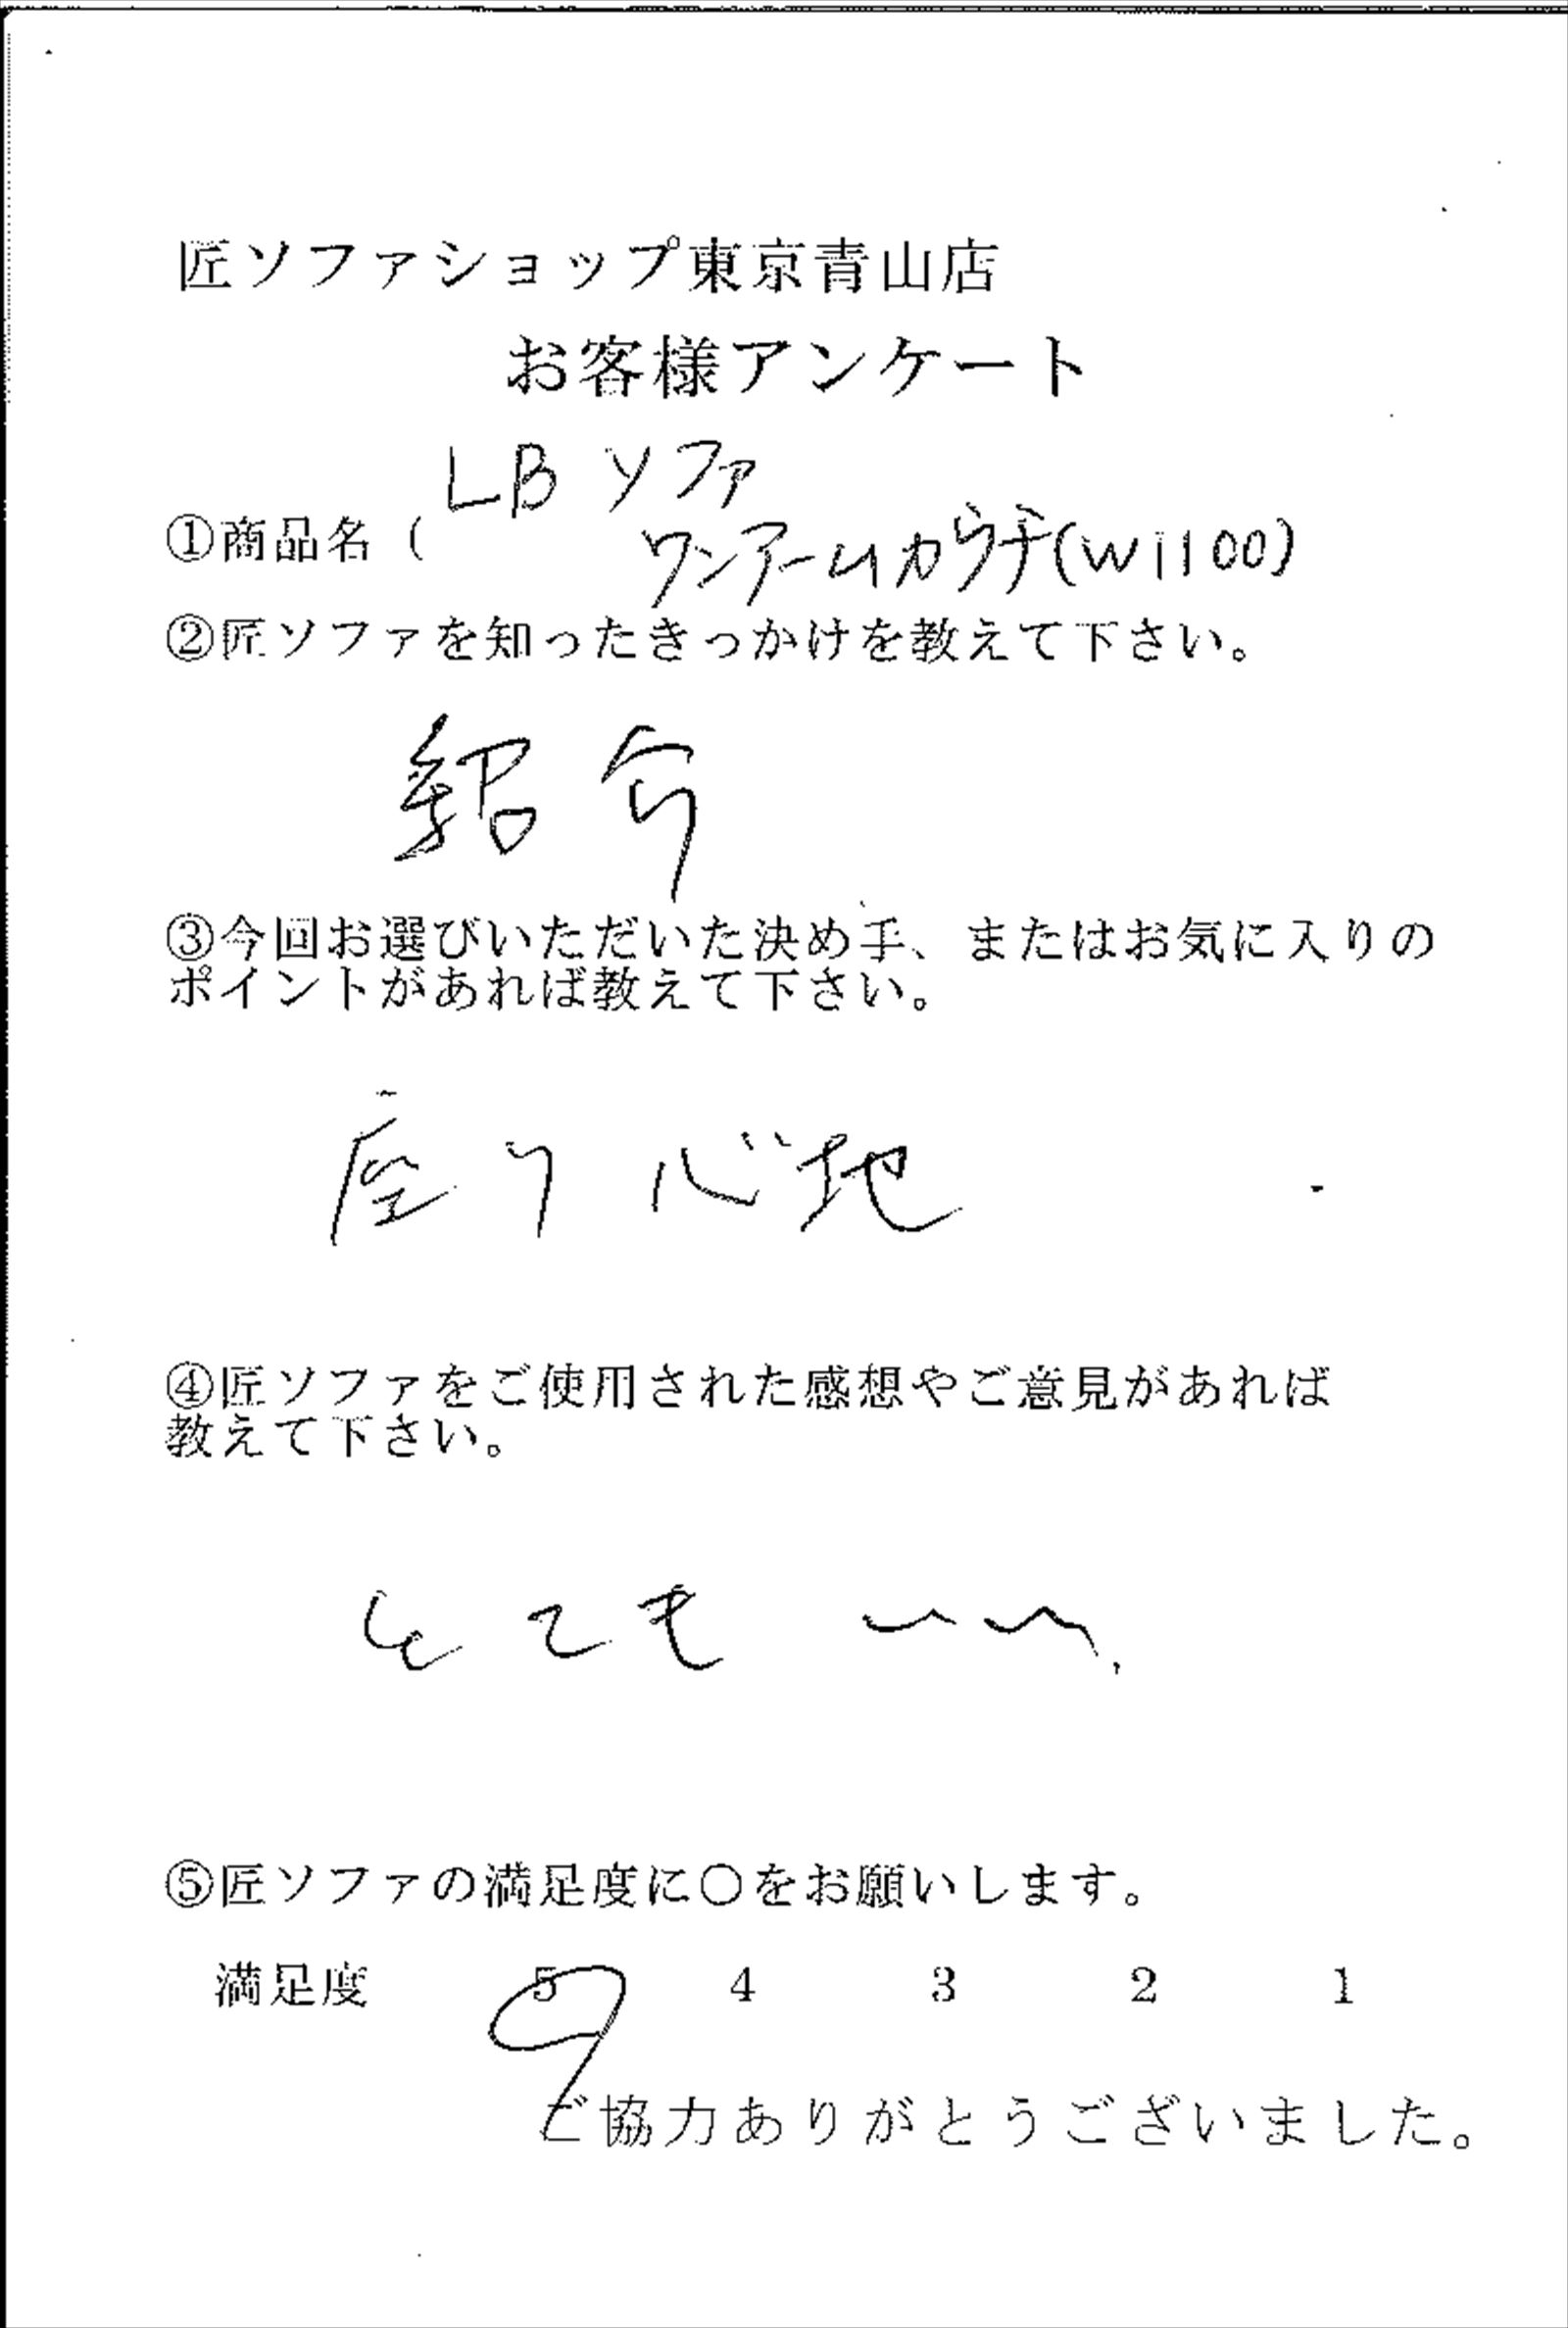 匠ソファショップ東京青山店
お客様アンケート
LBソファ
①商品名(
ワンアームカウチ(W1100)
②匠ソファを知ったきっかけを教えて下さい。
紹介
③今回お選びいただいた決め手、またはお気に入りの
ポイントがあれば教えて下さい。
座り心地
④匠ソファをご使用された感想やご意見があれば
教えて下さい。
とても いい、
⑤匠ソファの満足度に○をお願いします。
満足度 5 4 3 2 1
ご協力ありがとうございました。